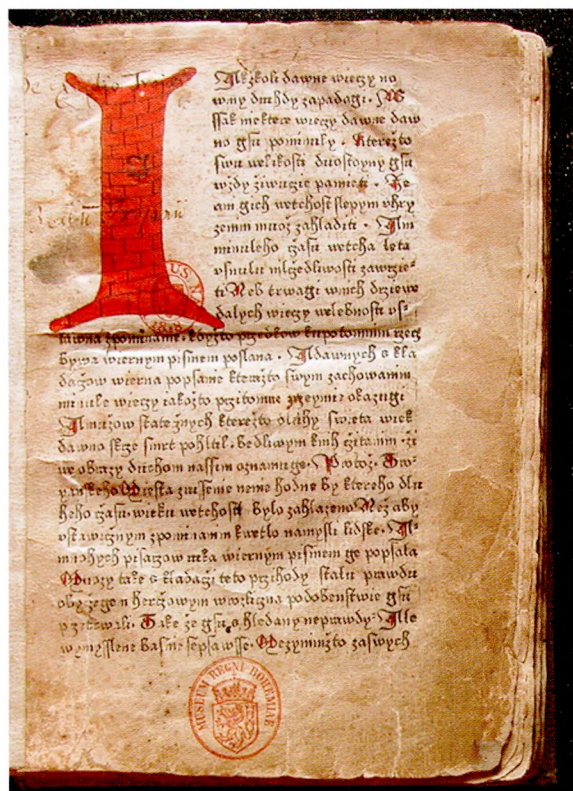 Alžkoli dawne wieczy no
wmy druhdy zapadagi. W
ssak niektere wieczy dawne daw
no gsu pominuly. Kterežto
swu velikosti duostoyny gsu
wždy žiwucie pamieti. Že
ani gich vetchost slepym vhry
zenim muož zahladiti. A
minuleho czasu vetcha leta
vsnulu mlcżedliwosti zawrzie
ti Neb trwagi wnich drziewe
dalych wieczy velebnosti vs
tawna zpominanie. kdyžto przedkow kupotomnim rzecz
bywa wiernym pismem poslana. A dawnych skla
daczow wierna popsanie kterežto swym zachowanim
minule wieczy iakožto przitomne okazugi
A mużow statecznych kterežto dluhy swieta wiek
dawno skrze smrt pohltil. bedliwym knih czitanim. ži
we obrazy duchom nassim oznamuge. Protož. Tro
yanskeho Miesta zrussenie nenie hodne by ktereho dlu
heho czasu wieku vetchosti bylo zahlazeno. Než aby
vstawicznym zpominanim kwetlo namysli lidske.
mnohych pisarzow ruka wiernym pismem ge popsala
Mnozy take skladagi teto przihody stalu prawdu
obyczegem herczowym wrozliczna podobenstwie gsu
Take že gsu shledany neprawdy. Ale
wymysslene basnie sepsawsse. Mezymižto zaswych
MUSEUM REGNI BOHEMIAE